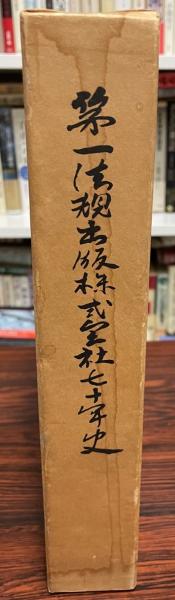 第一法規出版株式会社七十年史